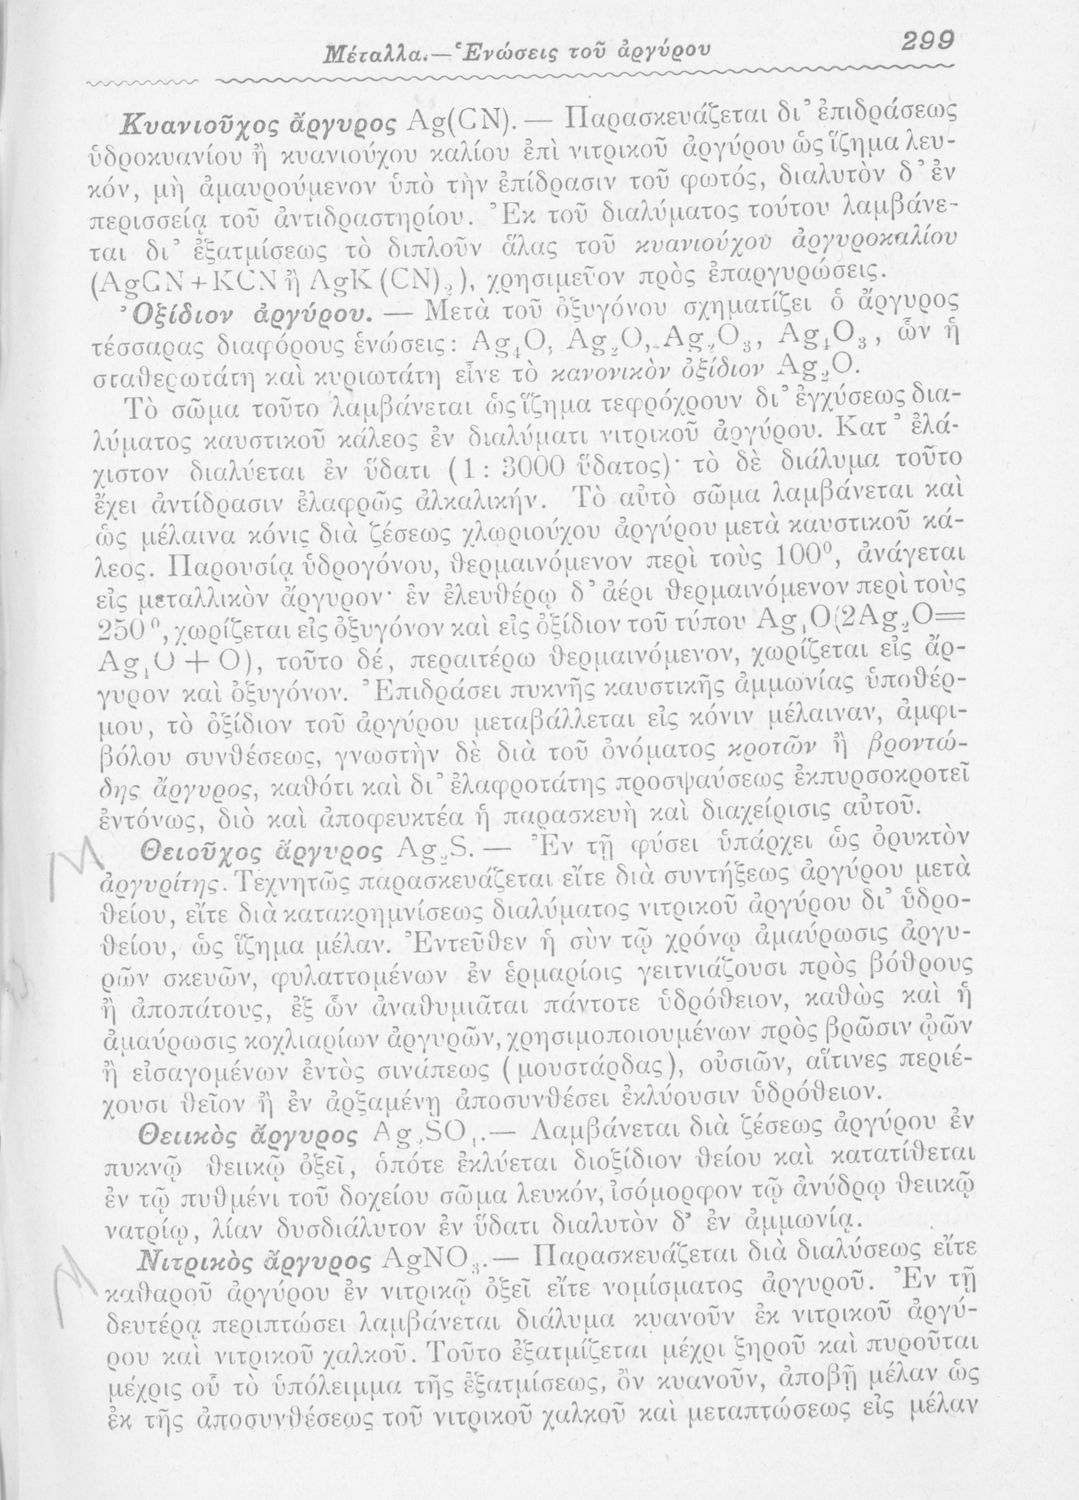 Μέταλλα.—Ἑνώσεις τοῦ ἀργύρου 299
Κυανιοῦχος ἄργυρος Ag(CN). — Παρασκευάζεται δι᾿ ἐπιδράσεως
ὑδροκυανίου ἢ κυανιούχου καλίου ἐπὶ νιτρικοῦ ἀργύρου ὡς ἵζημα λευ-
κόν, μὴ ἀμαυρούμενον ὑπὸ τὴν ἐπίδρασιν τοῦ φωτός, διαλυτὸν δ᾿ ἐν
περισσείᾳ τοῦ ἀντιδραστηρίου. Ἐκ τοῦ διαλύματος τούτου λαμβάνε-
ται δι᾿ ἐξατμίσεως τὸ διπλοῦν ἅλας τοῦ κυανιούχου ἀργυροκαλίου
(AgCN+KCN ἢ AgK(CN)₂), χρησιμεῦον πρὸς ἐπαργυρώσεις.
Ὀξίδιον ἀργύρου. — Μετὰ τοῦ ὀξυγόνου σχηματίζει ὁ ἄργυρος
τέσσαρας διαφόρους ἑνώσεις: Ag₄O, Ag₂O, Ag₂O₃, Ag₄O₃, ὧν ἡ
σταθερωτάτη καὶ κυριωτάτη εἶνε τὸ κανονικὸν ὀξίδιον Ag₂O.
Τὸ σῶμα τοῦτο λαμβάνεται ὡς ἵζημα τεφρόχρουν δι᾿ ἐγχύσεως δια-
λύματος καυστικοῦ κάλεος ἐν διαλύματι νιτρικοῦ ἀργύρου. Κατ᾿ ἐλά-
χιστον διαλύεται ἐν ὕδατι (1 : 3000 ὕδατος)· τὸ δὲ διάλυμα τοῦτο
ἔχει ἀντίδρασιν ἐλαφρῶς ἀλκαλικήν. Τὸ αὐτὸ σῶμα λαμβάνεται καὶ
ὡς μέλαινα κόνις διὰ ζέσεως χλωριούχου ἀργύρου μετὰ καυστικοῦ κά-
λεος. Παρουσίᾳ ὑδρογόνου, θερμαινόμενον περὶ τοὺς 100⁰, ἀνάγεται
εἰς μεταλλικὸν ἄργυρον· ἐν ἐλευθέρῳ δ᾿ ἀέρι θερμαινόμενον περὶ τοὺς
250⁰, χωρίζεται εἰς ὀξυγόνον καὶ εἰς ὀξίδιον τοῦ τύπου Ag₄O(2Ag₂O=
Ag₄O + O), τοῦτο δέ, περαιτέρω θερμαινόμενον, χωρίζεται εἰς ἄρ-
γυρον καὶ ὀξυγόνον. Ἐπιδράσει πυκνῆς καυστικῆς ἀμμωνίας ὑποθέρ-
μου, τὸ ὀξίδιον τοῦ ἀργύρου μεταβάλλεται εἰς κόνιν μέλαιναν, ἀμφι-
βόλου συνθέσεως, γνωστὴν δὲ διὰ τοῦ ὀνόματος κροτῶν ἢ βροντώ-
δης ἄργυρος, καθότι καὶ δι᾿ ἐλαφροτάτης προσψαύσεως ἐκπυρσοκροτεῖ
ἐντόνως, διὸ καὶ ἀποφευκτέα ἡ παρασκευὴ καὶ διαχείρισις αὐτοῦ.
Θειοῦχος ἄργυρος Ag₂S. — Ἐν τῇ φύσει ὑπάρχει ὡς ὀρυκτὸν
ἀργυρίτης. Τεχνητῶς παρασκευάζεται εἴτε διὰ συντήξεως ἀργύρου μετὰ
θείου, εἴτε διὰ κατακρημνίσεως διαλύματος νιτρικοῦ ἀργύρου δι᾿ ὑδρο-
θείου, ὡς ἵζημα μέλαν. Ἐντεῦθεν ἡ σὺν τῷ χρόνῳ ἀμαύρωσις ἀργυ-
ρῶν σκευῶν, φυλαττομένων ἐν ἑρμαρίοις γειτνιάζουσι πρὸς βόθρους
ἢ ἀποπάτους, ἐξ ὧν ἀναθυμιᾶται πάντοτε ὑδρόθειον, καθὼς καὶ ἡ
ἀμαύρωσις κοχλιαρίων ἀργυρῶν, χρησιμοποιουμένων πρὸς βρῶσιν ᾠῶν
ἢ εἰσαγομένων ἐντὸς σινάπεως (μουστάρδας), οὐσιῶν, αἵτινες περιέ-
χουσι θεῖον ἢ ἐν ἀρξαμένῃ ἀποσυνθέσει ἐκλύουσιν ὑδρόθειον.
Θειικὸς ἄργυρος Ag₂SO₄.— Λαμβάνεται διὰ ζέσεως ἀργύρου ἐν
πυκνῷ θειικῷ ὀξεῖ, ὁπότε ἐκλύεται διοξίδιον θείου καὶ κατατίθεται
ἐν τῷ πυθμένι τοῦ δοχείου σῶμα λευκόν, ἰσόμορφον τῷ ἀνύδρῳ θειικῷ
νατρίῳ, λίαν δυσδιάλυτον ἐν ὕδατι διαλυτὸν δ᾿ ἐν ἀμμωνίᾳ.
Νιτρικὸς ἄργυρος AgNO₃.— Παρασκευάζεται διὰ διαλύσεως εἴτε
καθαροῦ ἀργύρου ἐν νιτρικῷ ὀξεῖ εἴτε νομίσματος ἀργυροῦ. Ἐν τῇ
δευτέρᾳ περιπτώσει λαμβάνεται διάλυμα κυανοῦν ἐκ νιτρικοῦ ἀργύ-
ρου καὶ νιτρικοῦ χαλκοῦ. Τοῦτο ἐξατμίζεται μέχρι ξηροῦ καὶ πυροῦται
μέχρις οὗ τὸ ὑπόλειμμα τῆς ἐξατμίσεως, ὂν κυανοῦν, ἀποβῇ μέλαν ὡς
ἐκ τῆς ἀποσυνθέσεως τοῦ νιτρικοῦ χαλκοῦ καὶ μεταπτώσεως εἰς μέλαν